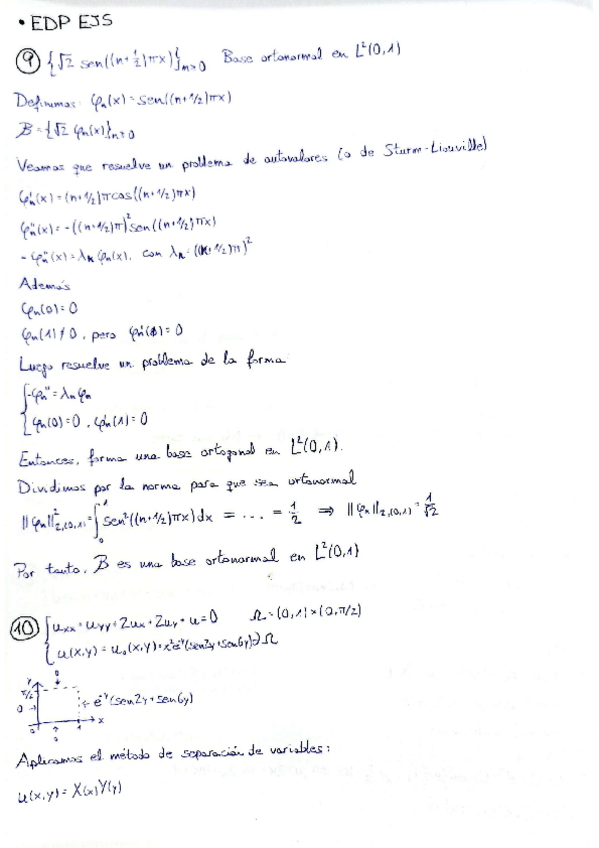 • EDP EJS
⑨ {√2 sen((n+½)πx)}n≥0 Base ortonormal en L²(0,1)
Definimos: φn(x) = sen((n+1/2)πx)
B = {√2 φn(x)}n≥0
Veamos que resuelve un problema de autovalores (o de Sturm-Liouville)
φn'(x) = (n+1/2)π cos((n+1/2)πx)
φn''(x) = -((n+1/2)π)² sen((n+1/2)πx)
-φn''(x) = λn φn(x), con λn = ((n+1/2)π)²
Además
φn(0) = 0
φn(1) ≠ 0, pero φn'(1) = 0
Luego resuelve un problema de la forma:
{ -φn'' = λn φn
φn(0) = 0, φn'(1) = 0
Entonces, forma una base ortogonal en L²(0,1).
Dividimos por la norma para que sea ortonormal
||φn||²2,(0,1) = ∫₀¹ sen²((n+1/2)πx) dx = ... = 1/2 ⇒ ||φn||2,(0,1) = 1/√2
Por tanto, B es una base ortonormal en L²(0,1)
⑩ { uxx + uyy + 2ux + 2uy + u = 0 Ω = (0,1)×(0,π/2)
u(x,y) = u₀(x,y) = x²e⁻ʸ(sen2y+sen6y) ∂Ω
y 0
π/2
0 → ← e⁻ʸ(sen2y+sen6y)
0 1 x
0
Aplicamos el método de separación de variables:
u(x,y) = X(x)Y(y)